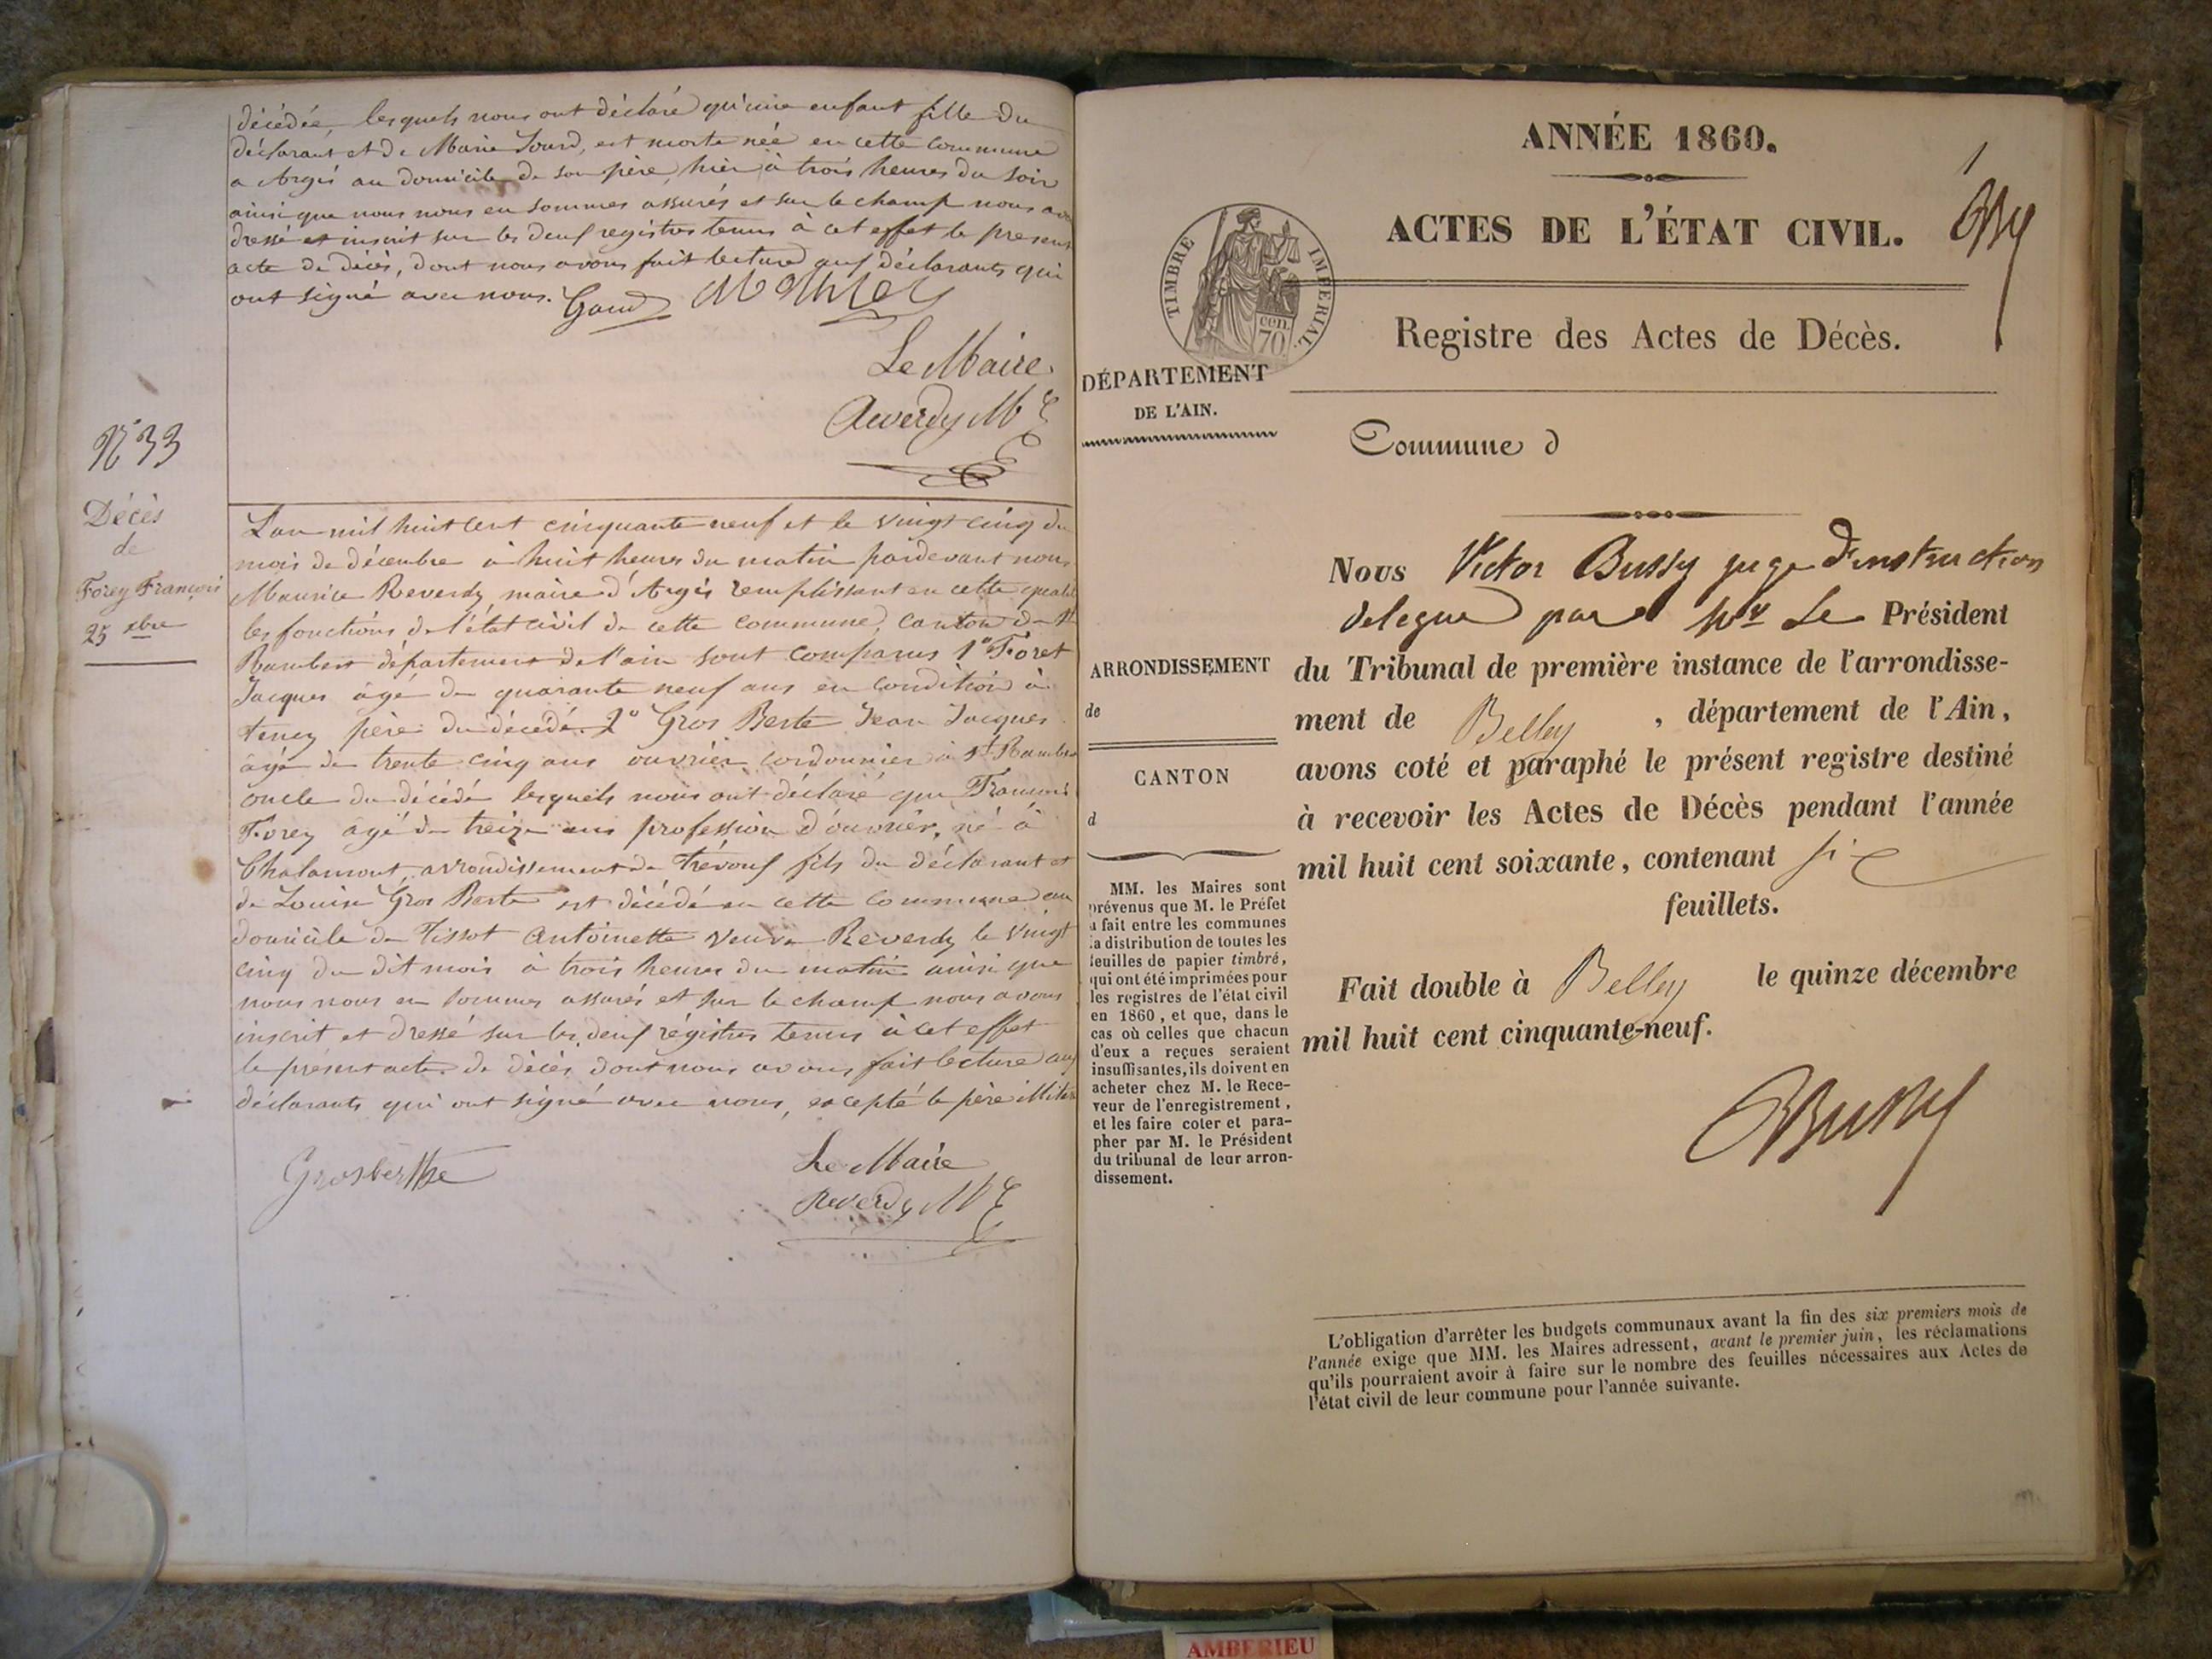 décédée, lesquels nous ont déclaré qu'une enfant fille du
déclarant et de Marie Jourd, est morte née en cette commune
a Argis au domicile de son père, hier à trois heures du soir
ainsi que nous nous en sommes assurés et sur le champ nous avons
dressé et inscrit sur les deux registres tenus à cet effet le présent
acte de décès, dont nous avons fait lecture aux déclarants qui
ont signé avec nous.
Le Maire
Reverdy M
N° 33
Décès
de
Forey François
25 xbre
L'an mil huit cent cinquante neuf et le vingt cinq du
mois de décembre à huit heures du matin pardevant nous
Maurice Reverdy, maire d'Argis remplissant en cette qualité
les fonctions de l'état civil de cette commune, canton de St
Rambert département de l'ain sont comparus 1° Foret
Jacques âgé de quarante neuf ans en condition à
tenay père du décédé. 2° Gros Berte Jean Jacques
âgé de trente cinq ans ouvrier cordonnier à St Rambert
oncle du décédé lesquels nous ont déclaré que François
Forey âgé de treize ans profession d'ouvrier, né à
Chalamont, arrondissement de Trévoux fils du déclarant et
de Louise Gros Berte est décédé en cette commune au
domicile de Tissot Antoinette veuve Reverdy le vingt
cinq du dit mois à trois heures du matin ainsi que
nous nous en sommes assurés et sur le champ nous avons
inscrit et dressé sur les deux régistres tenus à cet effet
le présent acte de décès dont nous avons fait lecture aux
déclarants qui ont signé avec nous, excepté le père illitéré
Grosberthe
Le Maire
Reverdy M
ANNÉE 1860.
1
ACTES DE L'ÉTAT CIVIL.
TIMBRE IMPÉRIAL
cen.
70
Registre des Actes de Décès.
DÉPARTEMENT
DE L'AIN.
Commune d
Nous Victor Bussy juge d'instruction
delegué par Mr Le Président
du Tribunal de première instance de l'arrondisse-
ment de Belley, département de l'Ain,
avons coté et paraphé le présent registre destiné
à recevoir les Actes de Décès pendant l'année
mil huit cent soixante, contenant six
feuillets.
Fait double à Belley le quinze décembre
mil huit cent cinquante-neuf.
Bussy
ARRONDISSEMENT
de
CANTON
d
MM. les Maires sont
prévenus que M. le Préfet
a fait entre les communes
la distribution de toutes les
feuilles de papier timbré,
qui ont été imprimées pour
les registres de l'état civil
en 1860, et que, dans le
cas où celles que chacun
d'eux a reçues seraient
insuffisantes, ils doivent en
acheter chez M. le Rece-
veur de l'enregistrement,
et les faire coter et para-
pher par M. le Président
du tribunal de leur arron-
dissement.
L'obligation d'arrêter les budgets communaux avant la fin des six premiers mois de
l'année exige que MM. les Maires adressent, avant le premier juin, les réclamations
qu'ils pourraient avoir à faire sur le nombre des feuilles nécessaires aux Actes de
l'état civil de leur commune pour l'année suivante.
AMBERIEU